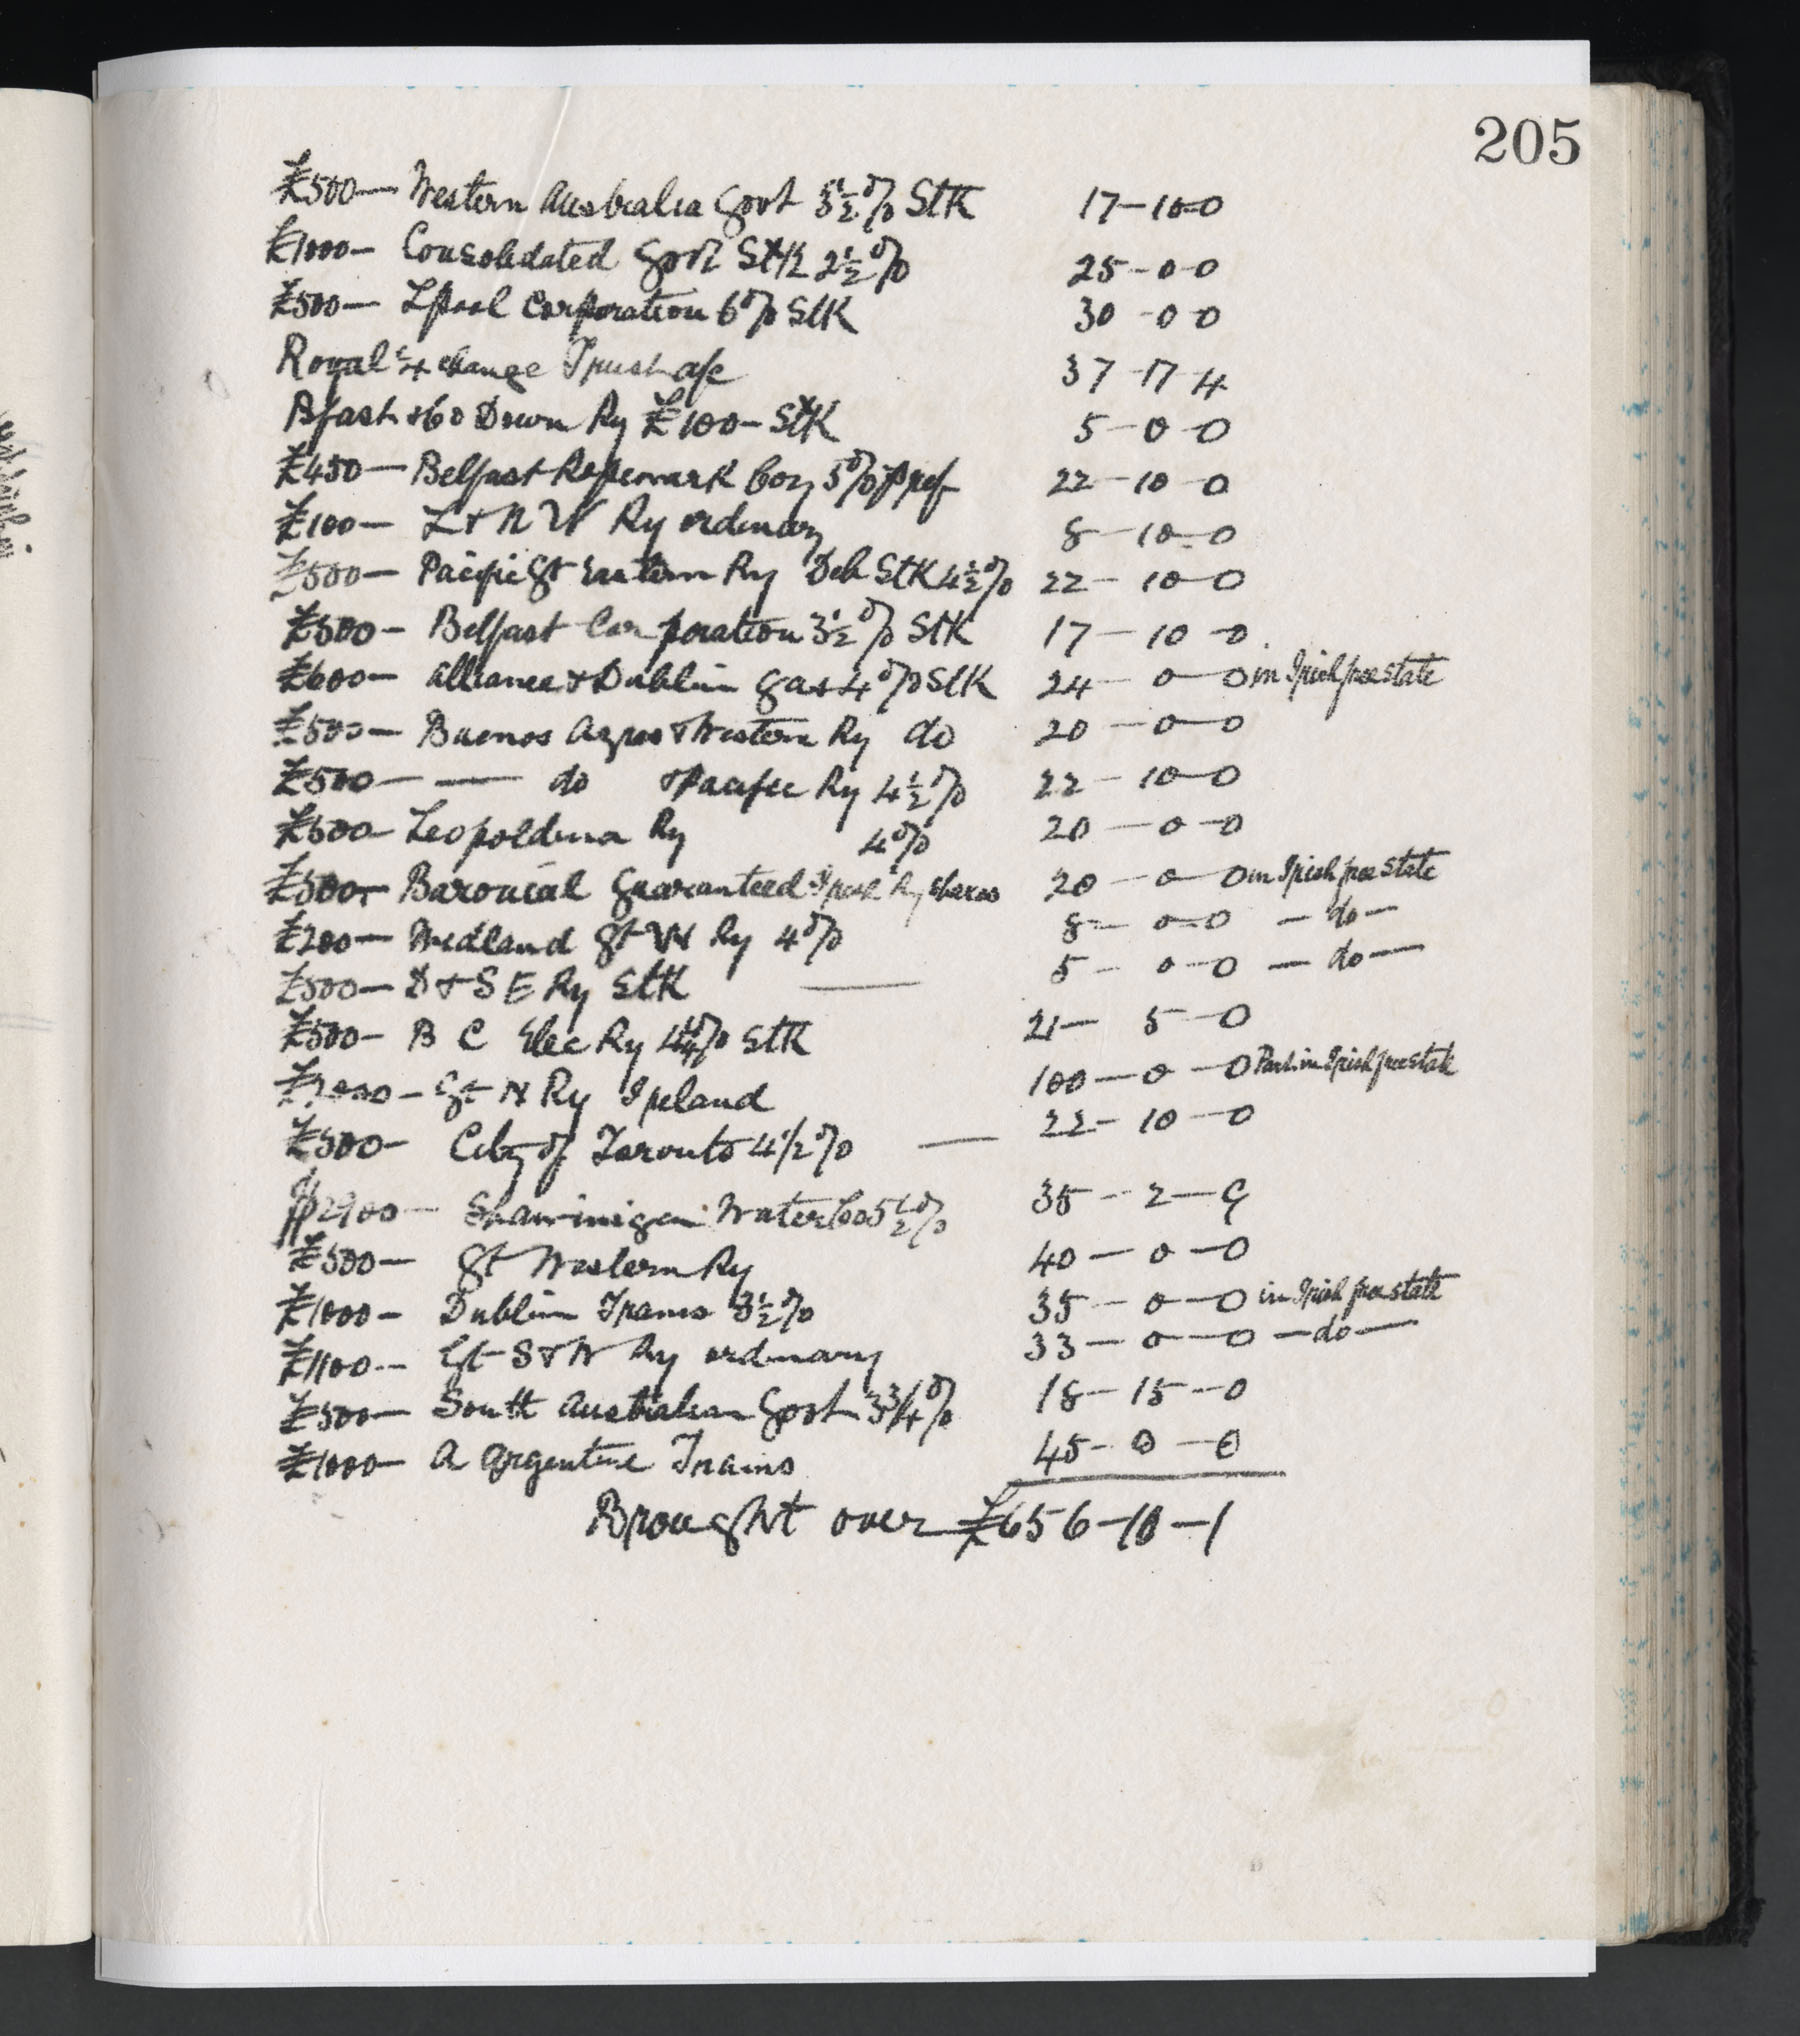 205
£500— Western Australia Govt 3½% StK 17—10—0
£1000— Consolidated Govt StK 2½% 25—0—0
£500— Lpool Corporation 6% StK 30—0—0
Royal Exchange Trust a/c 37—17—4
Bfast & Co Down Ry £100— StK 5—0—0
£450— Belfast Ropework Coy 5% Pref 22—10—0
£100— L & N W Ry ordinary 8—10—0
£500— Pacific Gt Eastern Ry Deb StK 4½% 22—10—0
£500— Belfast Corporation 3½% StK 17—10—0
£600— Alliance & Dublin Gas 4% StK 24—0—0 in Irish free state
£500— Buenos Ayres & Western Ry do 20—0—0
£500— — do & Pacific Ry 4½% 22—10—0
£500— Leopoldina Ry 4% 20—0—0
£500— Baronial Guaranteed Irish Ry shares 20—0—0 in Irish free state
£200— Midland Gt W Ry 4% 8—0—0 — do —
£500— D & S E Ry StK — 5—0—0 — do —
£500— B C Elec Ry 4¼% StK 21—5—0
£2000— Gt N Ry Ireland 100—0—0 Part in Irish free state
£500— City of Toronto 4½% — 22—10—0
$2900— Shawinigan Water Co 5½% 35—2—9
£500— Gt Western Ry 40—0—0
£1000— Dublin Trams 3½% 35—0—0 in Irish free state
£1100— Gt S & W Ry ordinary 33—0—0 — do —
£500— South Australian Govt 3¾% 18—15—0
£1000— A Argentine Trams 45—0—0
Brought over £656—10—1